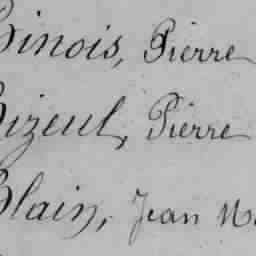 Binois, Pierre
Bizeul, Pierre
Blain, Jean M